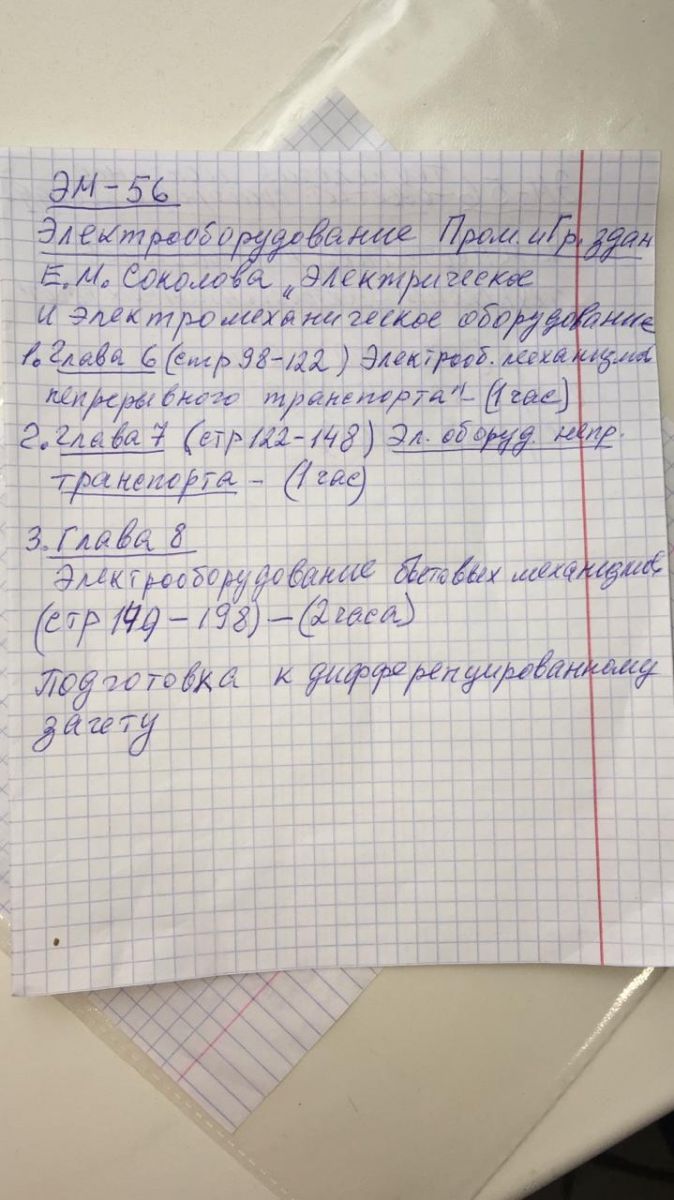 ЭМ-56
Электрооборудование Пром. и Гр. здан
Е.М. Соколова „Электрическое
и электромеханическое оборудование
1. Глава 6 (стр 98-122) Электрооб. механизмов
непрерывного транспорта" - (1 час)
2. Глава 7 (стр 122-148) Эл. оборуд. непр.
транспорта - (1 час)
3. Глава 8
Электрооборудование бытовых механизмов
(стр 149 - 198) - (2 часа)
Подготовка к дифференцированному
зачету